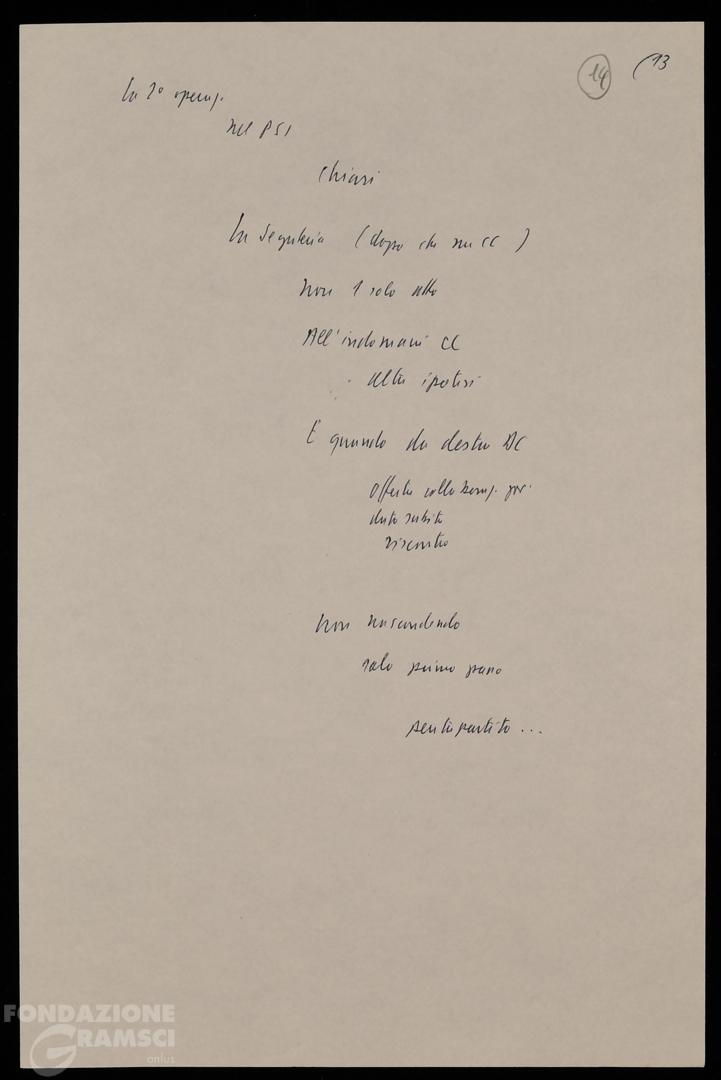 14
(13
In 2° operaz.
nel PSI
Chiari
In Segreteria (dopo che in CC)
Non 1 solo atto
All'indomani CC
altre ipotesi
È quando da destra DC
offerta collaboraz. gov.
dato subito
riscontro
Non nascondendo
solo primo passo
pentapartito ...
FONDAZIONE
GRAMSCI
onlus